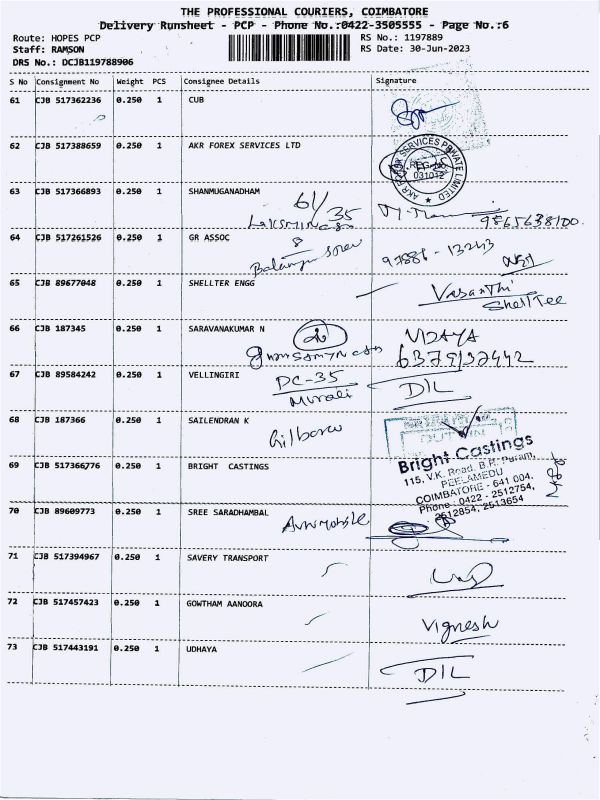 THE PROFESSIONAL COURIERS, COIMBATORE
Delivery Runsheet - PCP - Phone No.:0422-3505555 - Page No.:6
Route: HOPES PCP
RS No.: 1197889
Staff: RAMSON
RS Date: 30-Jun-2023
DRS No.: DCJB119788906
S No Consignment No Weight PCS Consignee Details Signature
61 CJB 517362236 0.250 1 CUB
62 CJB 517388659 0.250 1 AKR FOREX SERVICES LTD
AKR FOREX SERVICES PRIVATE LIMITED
031012
63 CJB 517366893 0.250 1 SHANMUGANADHAM
61/35
9865638100
64 CJB 517261526 0.250 1 GR ASSOC
8
97886-13243
65 CJB 89677048 0.250 1 SHELLTER ENGG
Vasanthi
66 CJB 187345 0.250 1 SARAVANAKUMAR N
VIJAYA
6379132442
67 CJB 89584242 0.250 1 VELLINGIRI
DC-35
Murali
DIL
68 CJB 187366 0.250 1 SAILENDRAN K
69 CJB 517366776 0.250 1 BRIGHT CASTINGS
Bright Castings
115, V.K. Road, B.R. Puram,
PEELAMEDU
COIMBATORE - 641 004.
Phone : 0422 - 2512754,
2512854, 2513654
70 CJB 89609773 0.250 1 SREE SARADHAMBAL
71 CJB 517394967 0.250 1 SAVERY TRANSPORT
72 CJB 517457423 0.250 1 GOWTHAM AANOORA
Vignesh
73 CJB 517443191 0.250 1 UDHAYA
DIL